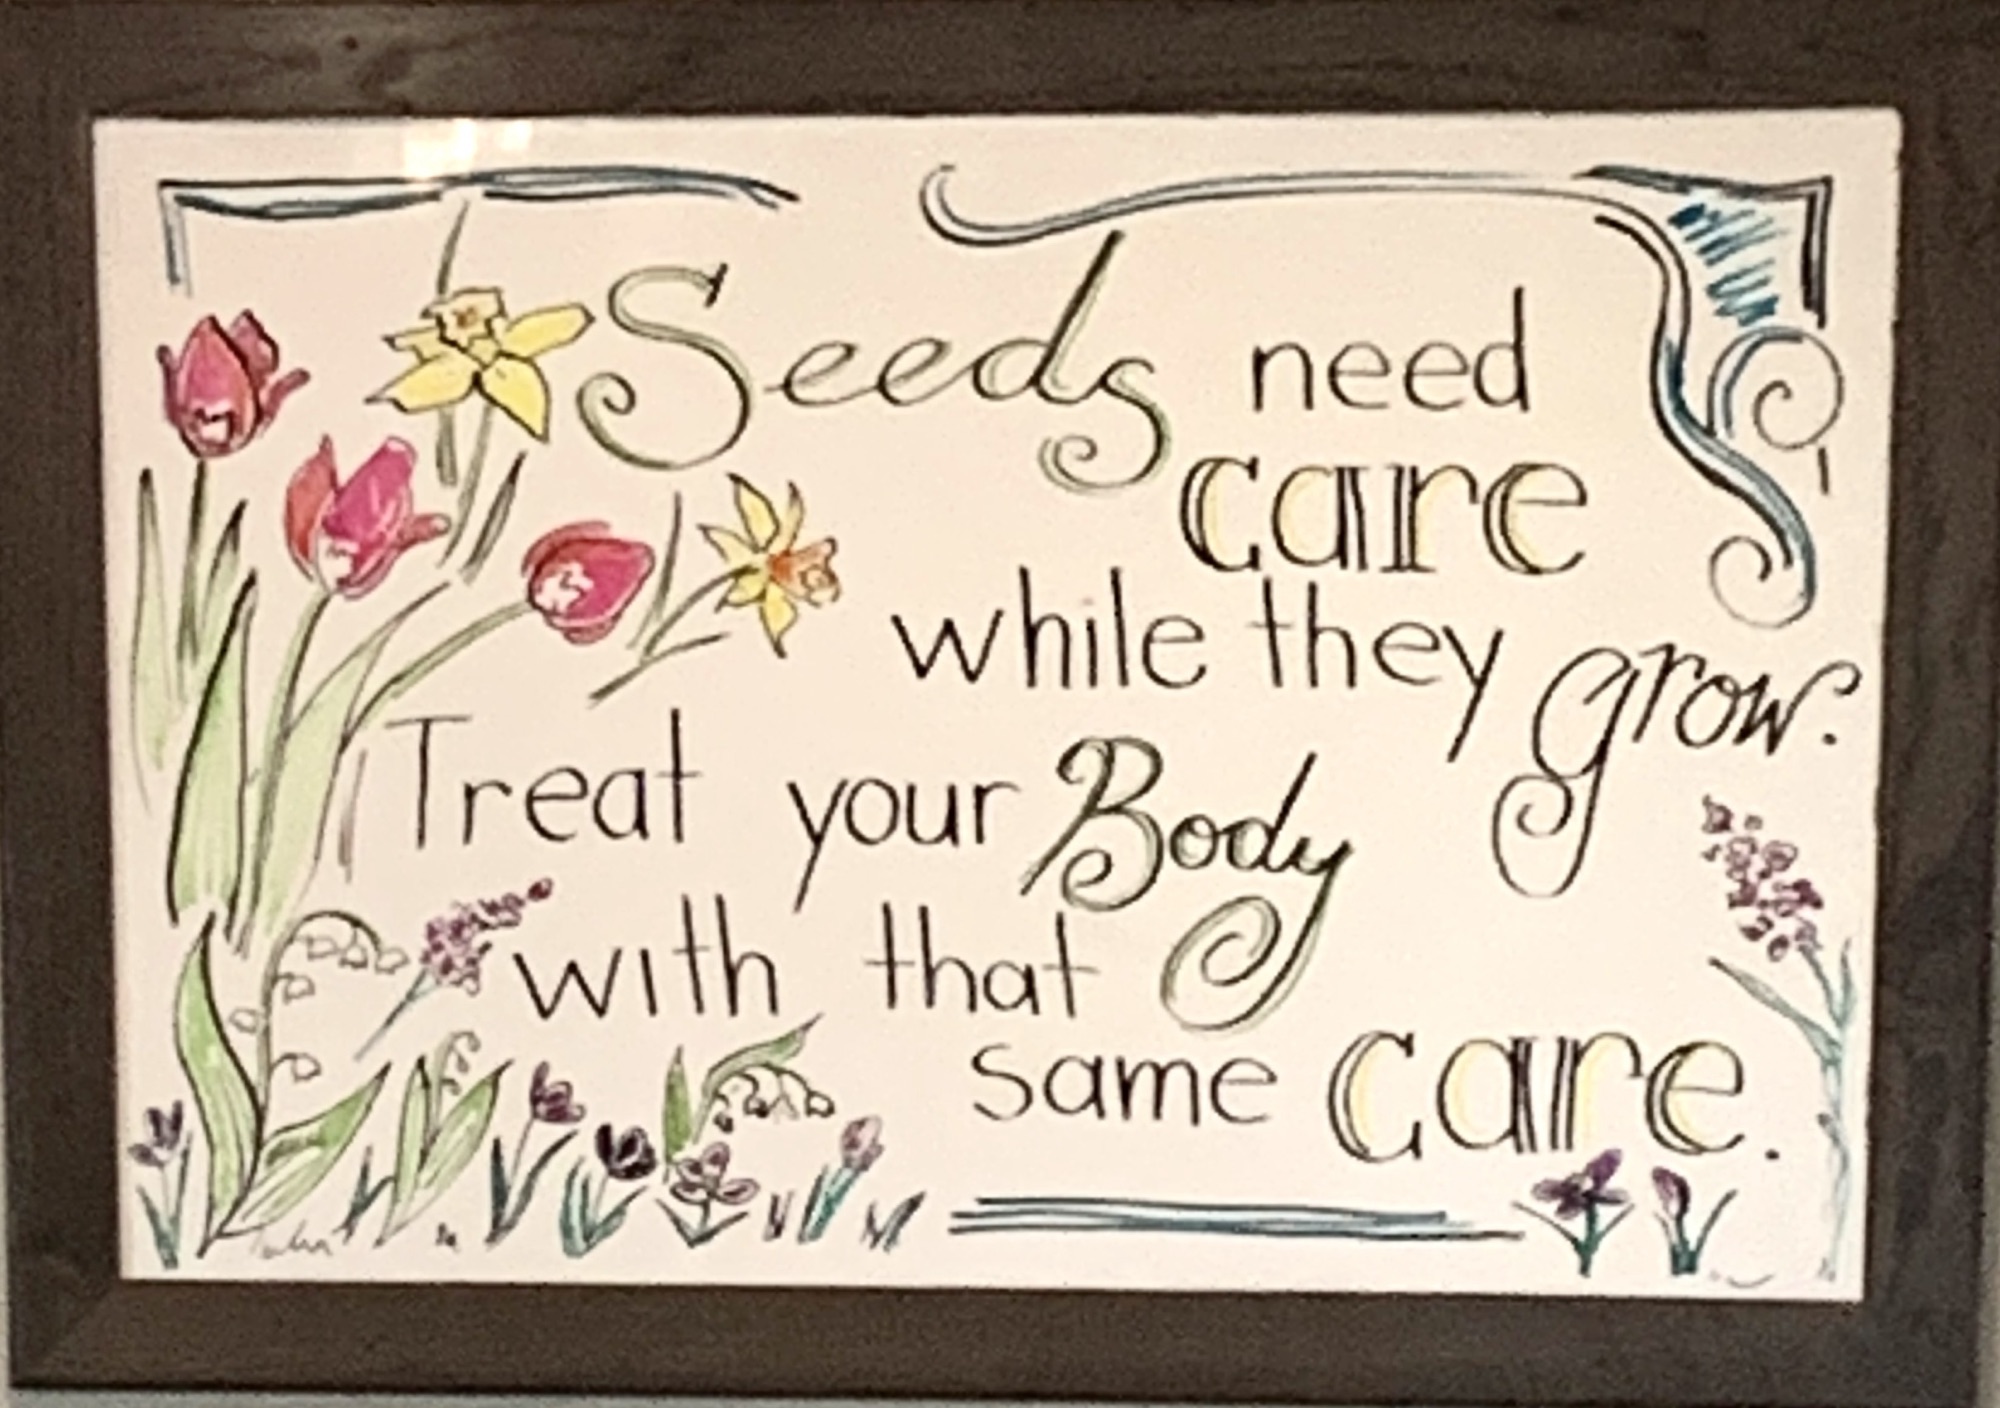 Seeds need
care
while they grow.
Treat your Body
with that
same care.